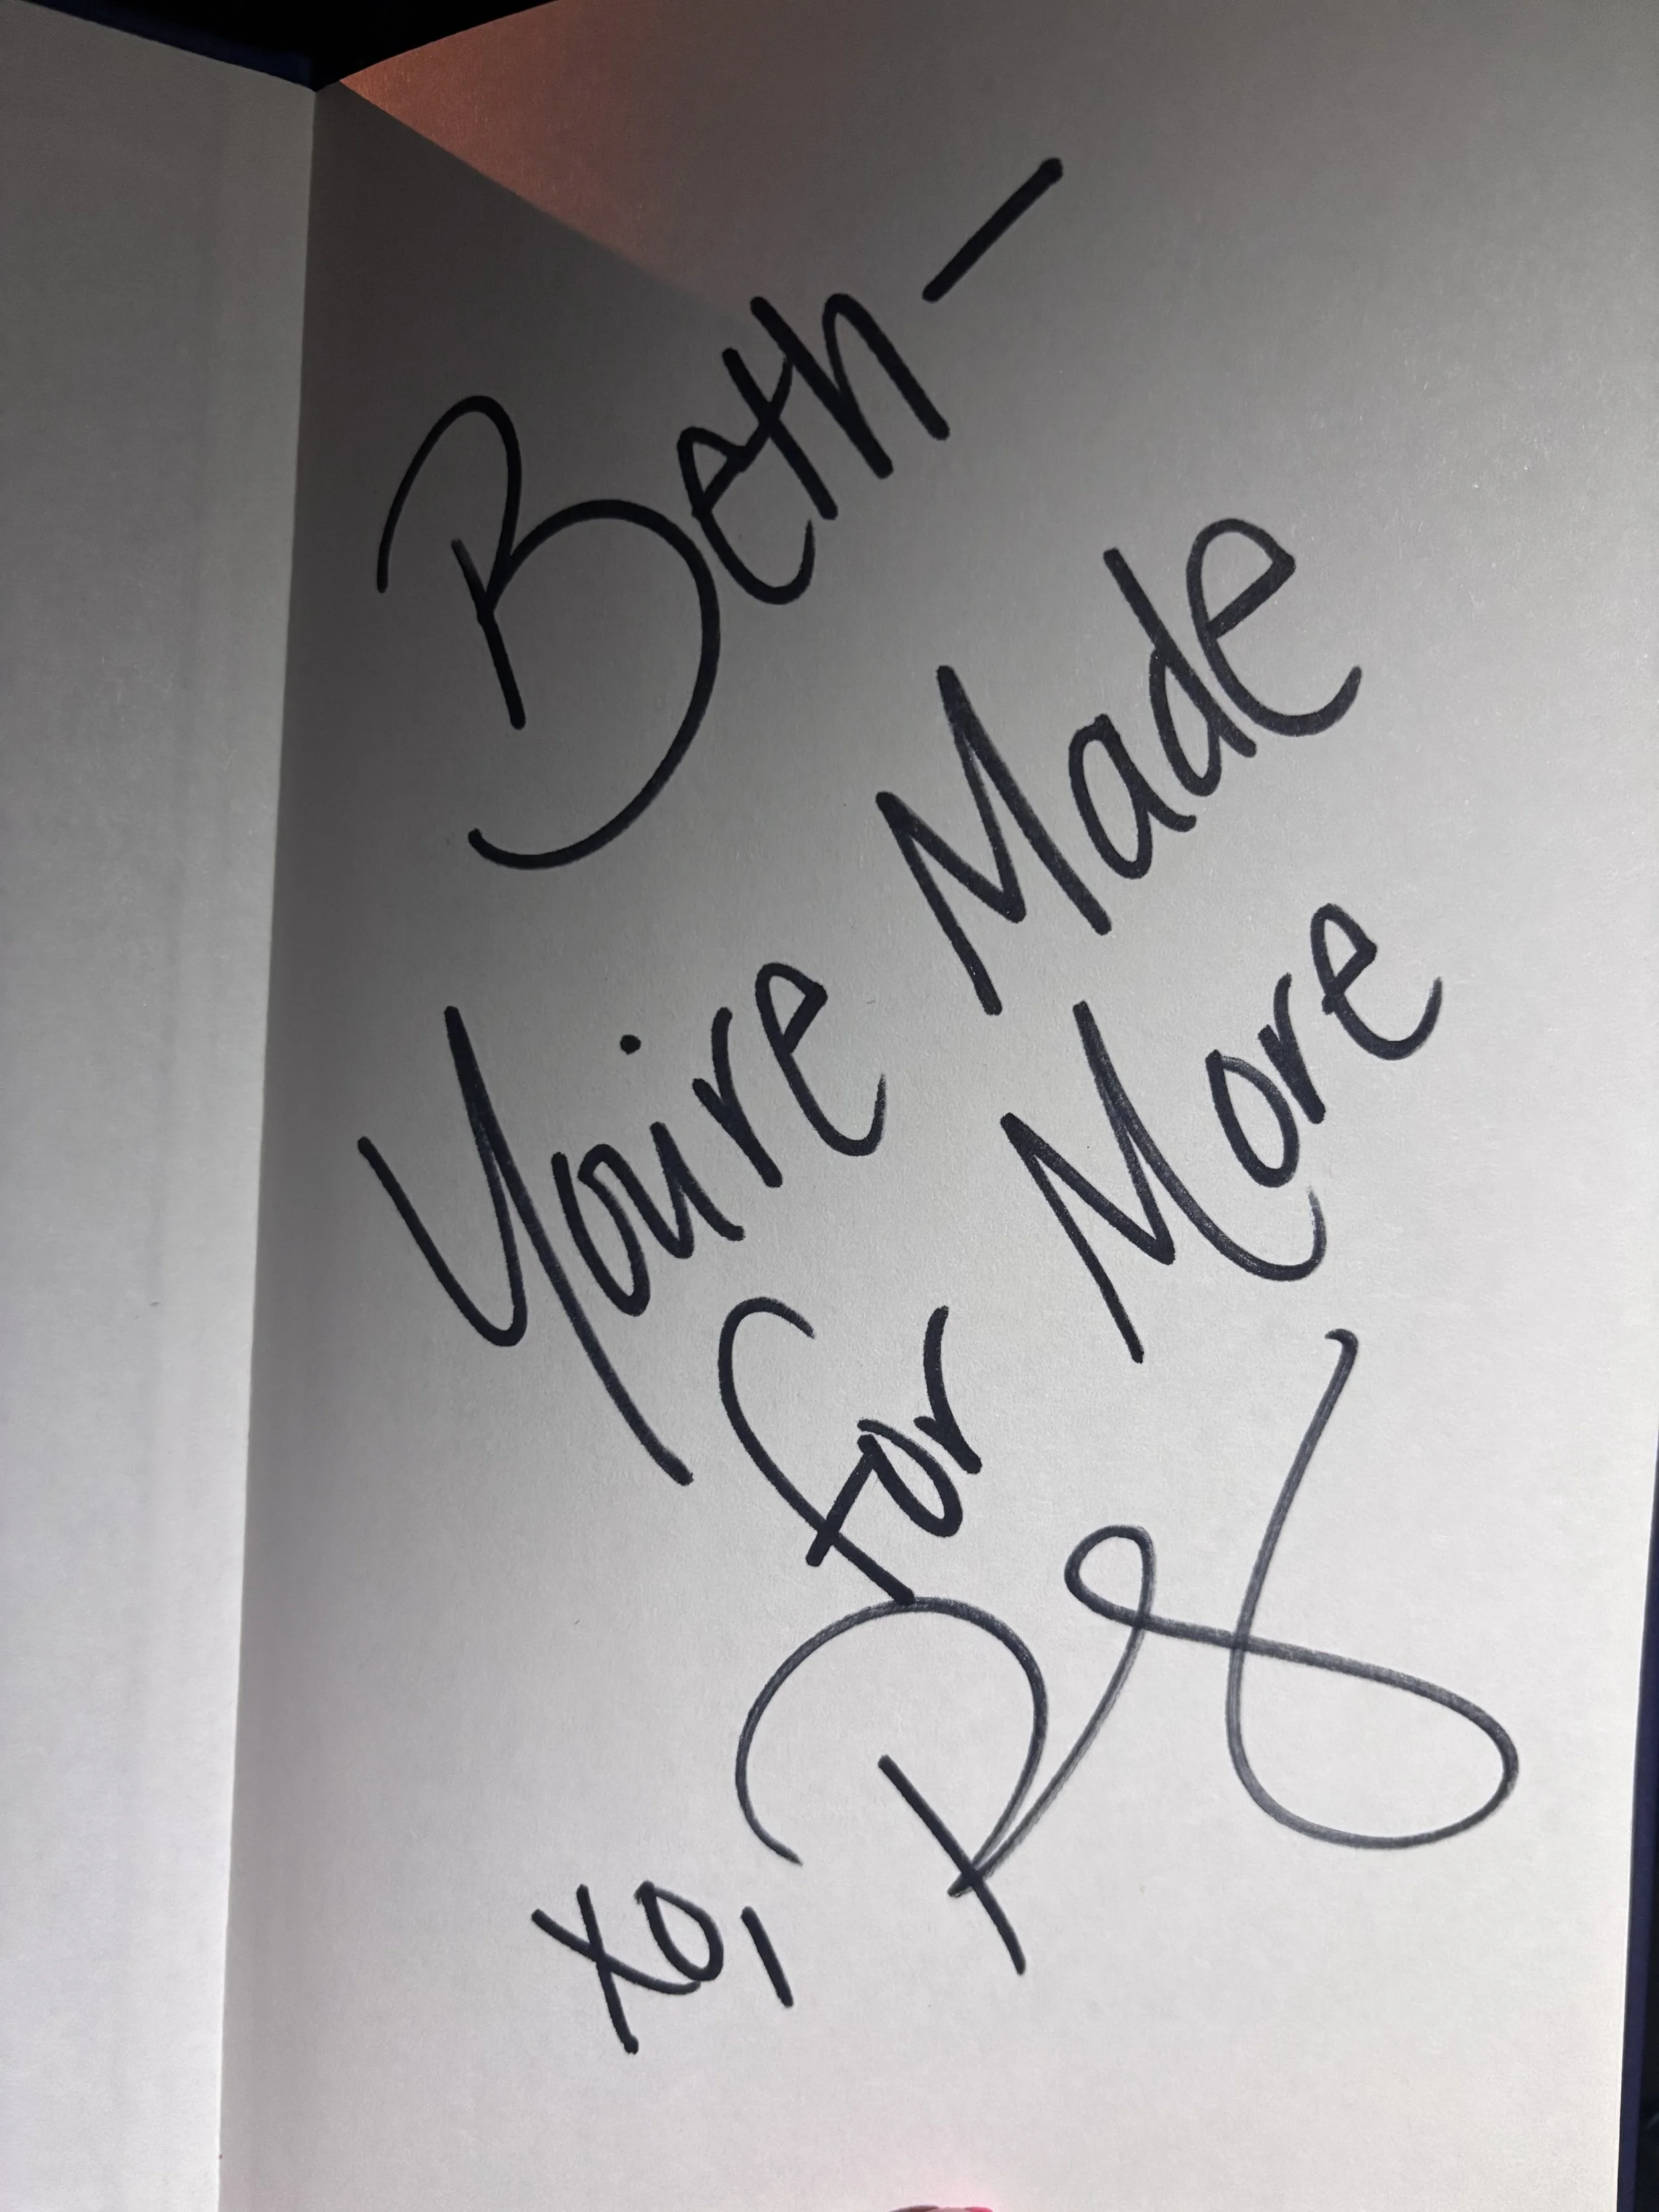 Beth-
You're Made
for More
xo,